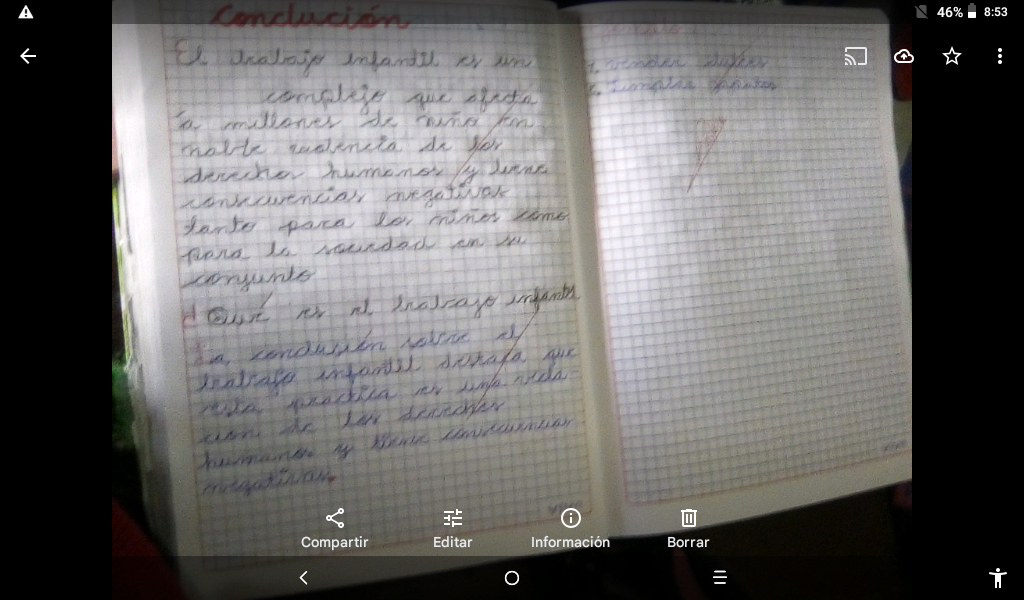 46% 8:53
Conclución
El trabajo infantil es un
complejo que afecta
a millones de niño en
de los
derechos humanos y tiene
consecuencias negativas
tanto para los niños como
para la sociedad en su
conjunto
Qué es el trabajo infantil
La conclusión sobre el
trabajo infantil destaca que
esta practica es una viola-
ción de los derechos
humanos y tiene consecuencias
negativas.
vender dulces
Limpiar zapatos
Compartir Editar Información Borrar